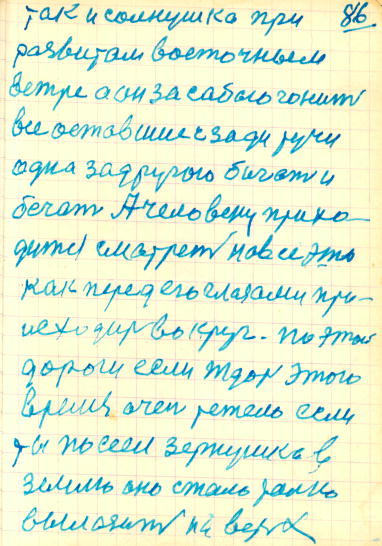 так и солнушка при 86.
развитам восточным
ветре а он за сабою гонит
все оставшие сзади тучи
одна за другою бигат и
бегат А человеку прихо-
дится сматреть на все это
как перед его глазами при-
исходит вокруг. по этой
дороги если ждал этого
время очен тежело если
ты посеел зернушка в
землю оно стало только
вылазить на верх